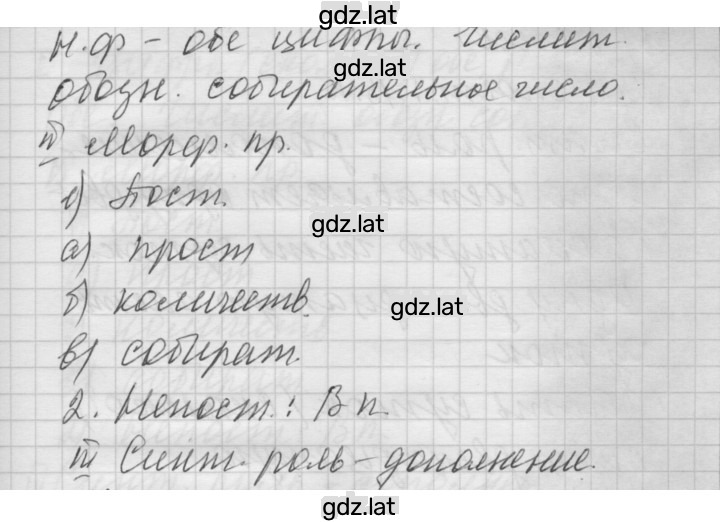 gdz.lat
н.ф – обе цифры. Числит.
gdz.lat
обозн. собирательное число.
II Морф. пр.
1) Пост.
gdz.lat
а) прост
б) количеств.
gdz.lat
в) собират.
2. Непост.: В п.
III Синт. роль – дополнение.
gdz.lat